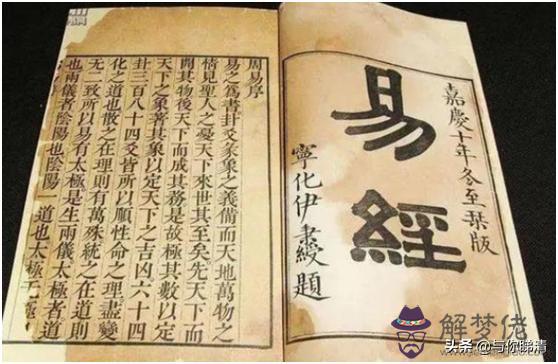 嘉慶十年冬至栞版
易經
寧化伊秉綬題
周易序
易之爲書卦爻彖象之義備而天地萬物之
情見聖人之憂天下來世其至矣先天下而
開其物後天下而成其務是故極其數以定
天下之象著其象以定天下之吉凶六十四
卦三百八十四爻皆所以順性命之理盡變
化之道也散之在理則有萬殊統之在道則
无二致所以易有太極是生兩儀太極者道
也兩儀者陰陽也陰陽一道也太極无極
解梦佬
头条 @与你睇清